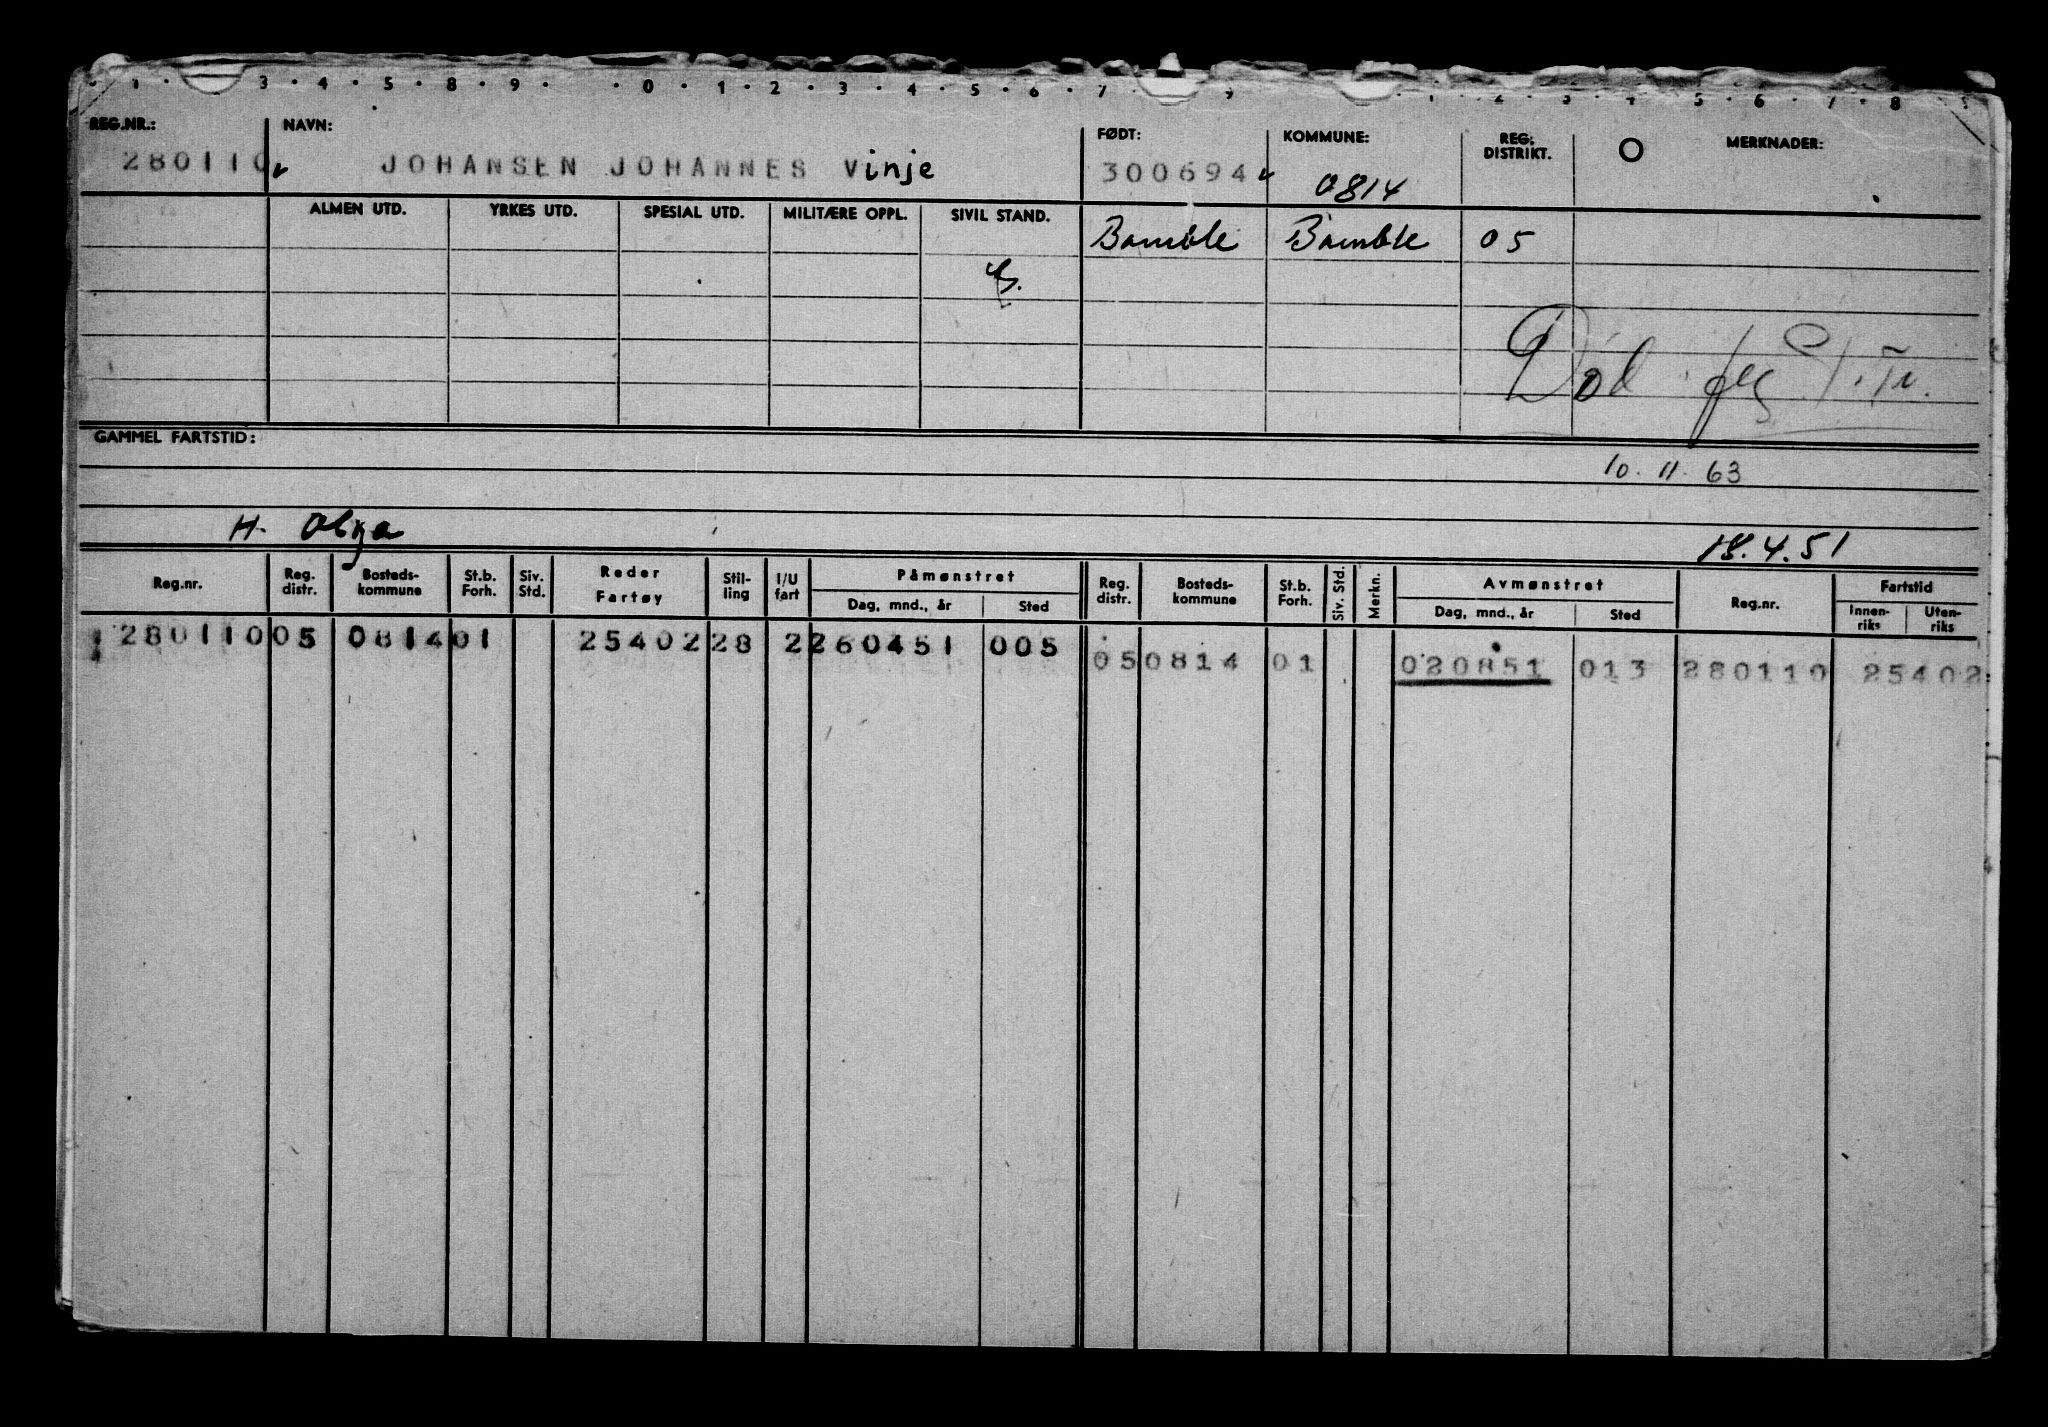 1 3 4 5 8 9 0 1 2 3 4 5 6 7 9 1 2 3 4 5 6 7 8
REG.NR.: NAVN: FØDT: KOMMUNE: REG. DISTRIKT. O MERKNADER:
280110 JOHANSEN JOHANNES Vinje 300694 0814
ALMEN UTD. YRKES UTD. SPESIAL UTD. MILITÆRE OPPL. SIVIL STAND.
Bamble Bamble 05
Død
GAMMEL FARTSTID:
10. 11. 63
H. Olga 18.4.51
Reg.nr. Reg. distr. Bosteds- kommune St.b. Forh. Siv. Std. Reder Fartøy Stil- ling I/U fart Påmønstret Reg. distr. Bosteds- kommune St.b. Forh. Siv. Std. Merkn. Avmønstret Reg.nr. Fartstid
Dag, mnd., år Sted Dag, mnd., år Sted Innen- riks Uten- riks
280110 05 0814 01 25402 28 2 260451 005
05 0814 01 020851 013 280110 25402